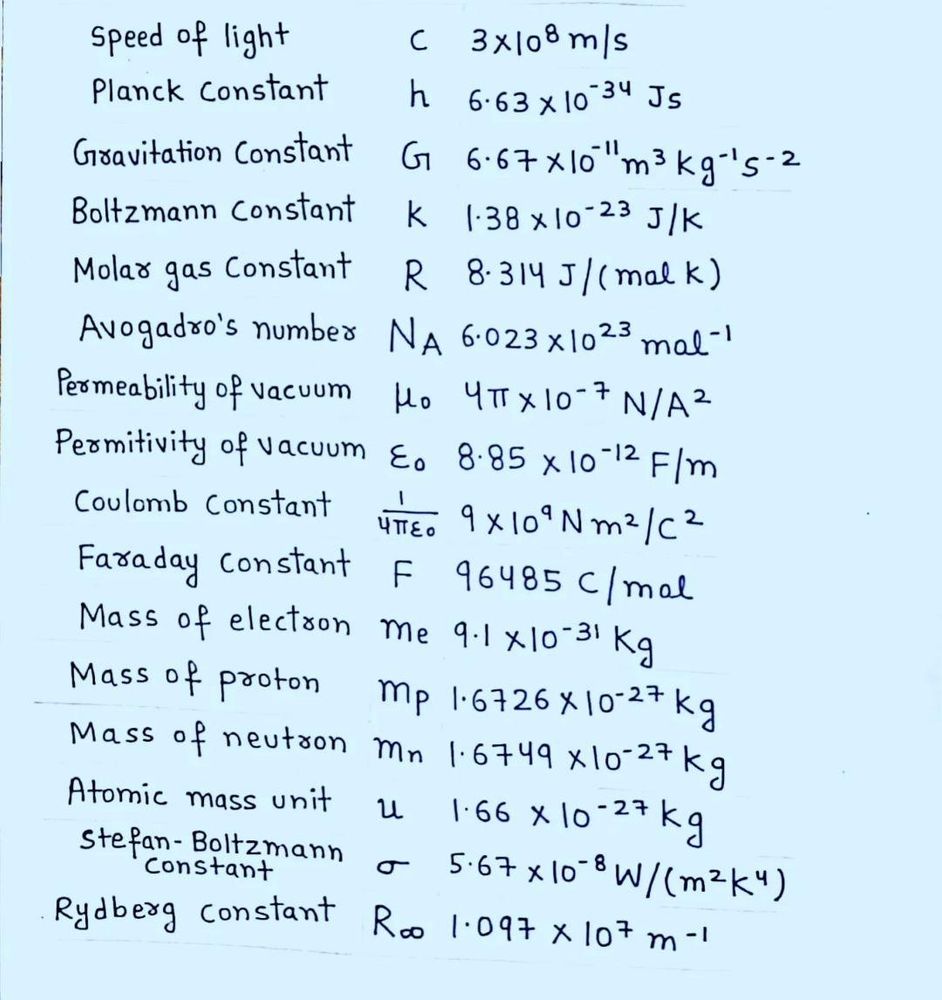 Speed of light c 3×10⁸ m/s
Planck Constant h 6.63 × 10⁻³⁴ Js
Gravitation Constant G 6.67 × 10⁻¹¹ m³ kg⁻¹s⁻²
Boltzmann Constant k 1.38 × 10⁻²³ J/K
Molar gas Constant R 8.314 J/(mol K)
Avogadro's number N_A 6.023 × 10²³ mol⁻¹
Permeability of vacuum μ₀ 4π × 10⁻⁷ N/A²
Permitivity of vacuum ε₀ 8.85 × 10⁻¹² F/m
Coulomb Constant 1/4πε₀ 9 × 10⁹ N m²/C²
Faraday Constant F 96485 C/mol
Mass of electron me 9.1 × 10⁻³¹ Kg
Mass of proton mp 1.6726 × 10⁻²⁷ kg
Mass of neutron mn 1.6749 × 10⁻²⁷ kg
Atomic mass unit u 1.66 × 10⁻²⁷ kg
Stefan-Boltzmann
Constant σ 5.67 × 10⁻⁸ W/(m²K⁴)
Rydberg Constant R∞ 1.097 × 10⁷ m⁻¹